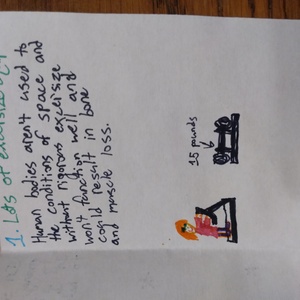 1. Lots of excersize
Human bodies aren't used to
the conditions of space and
without rigorous excersize
won't function well and
could result in bone
and muscle loss.
15 pounds